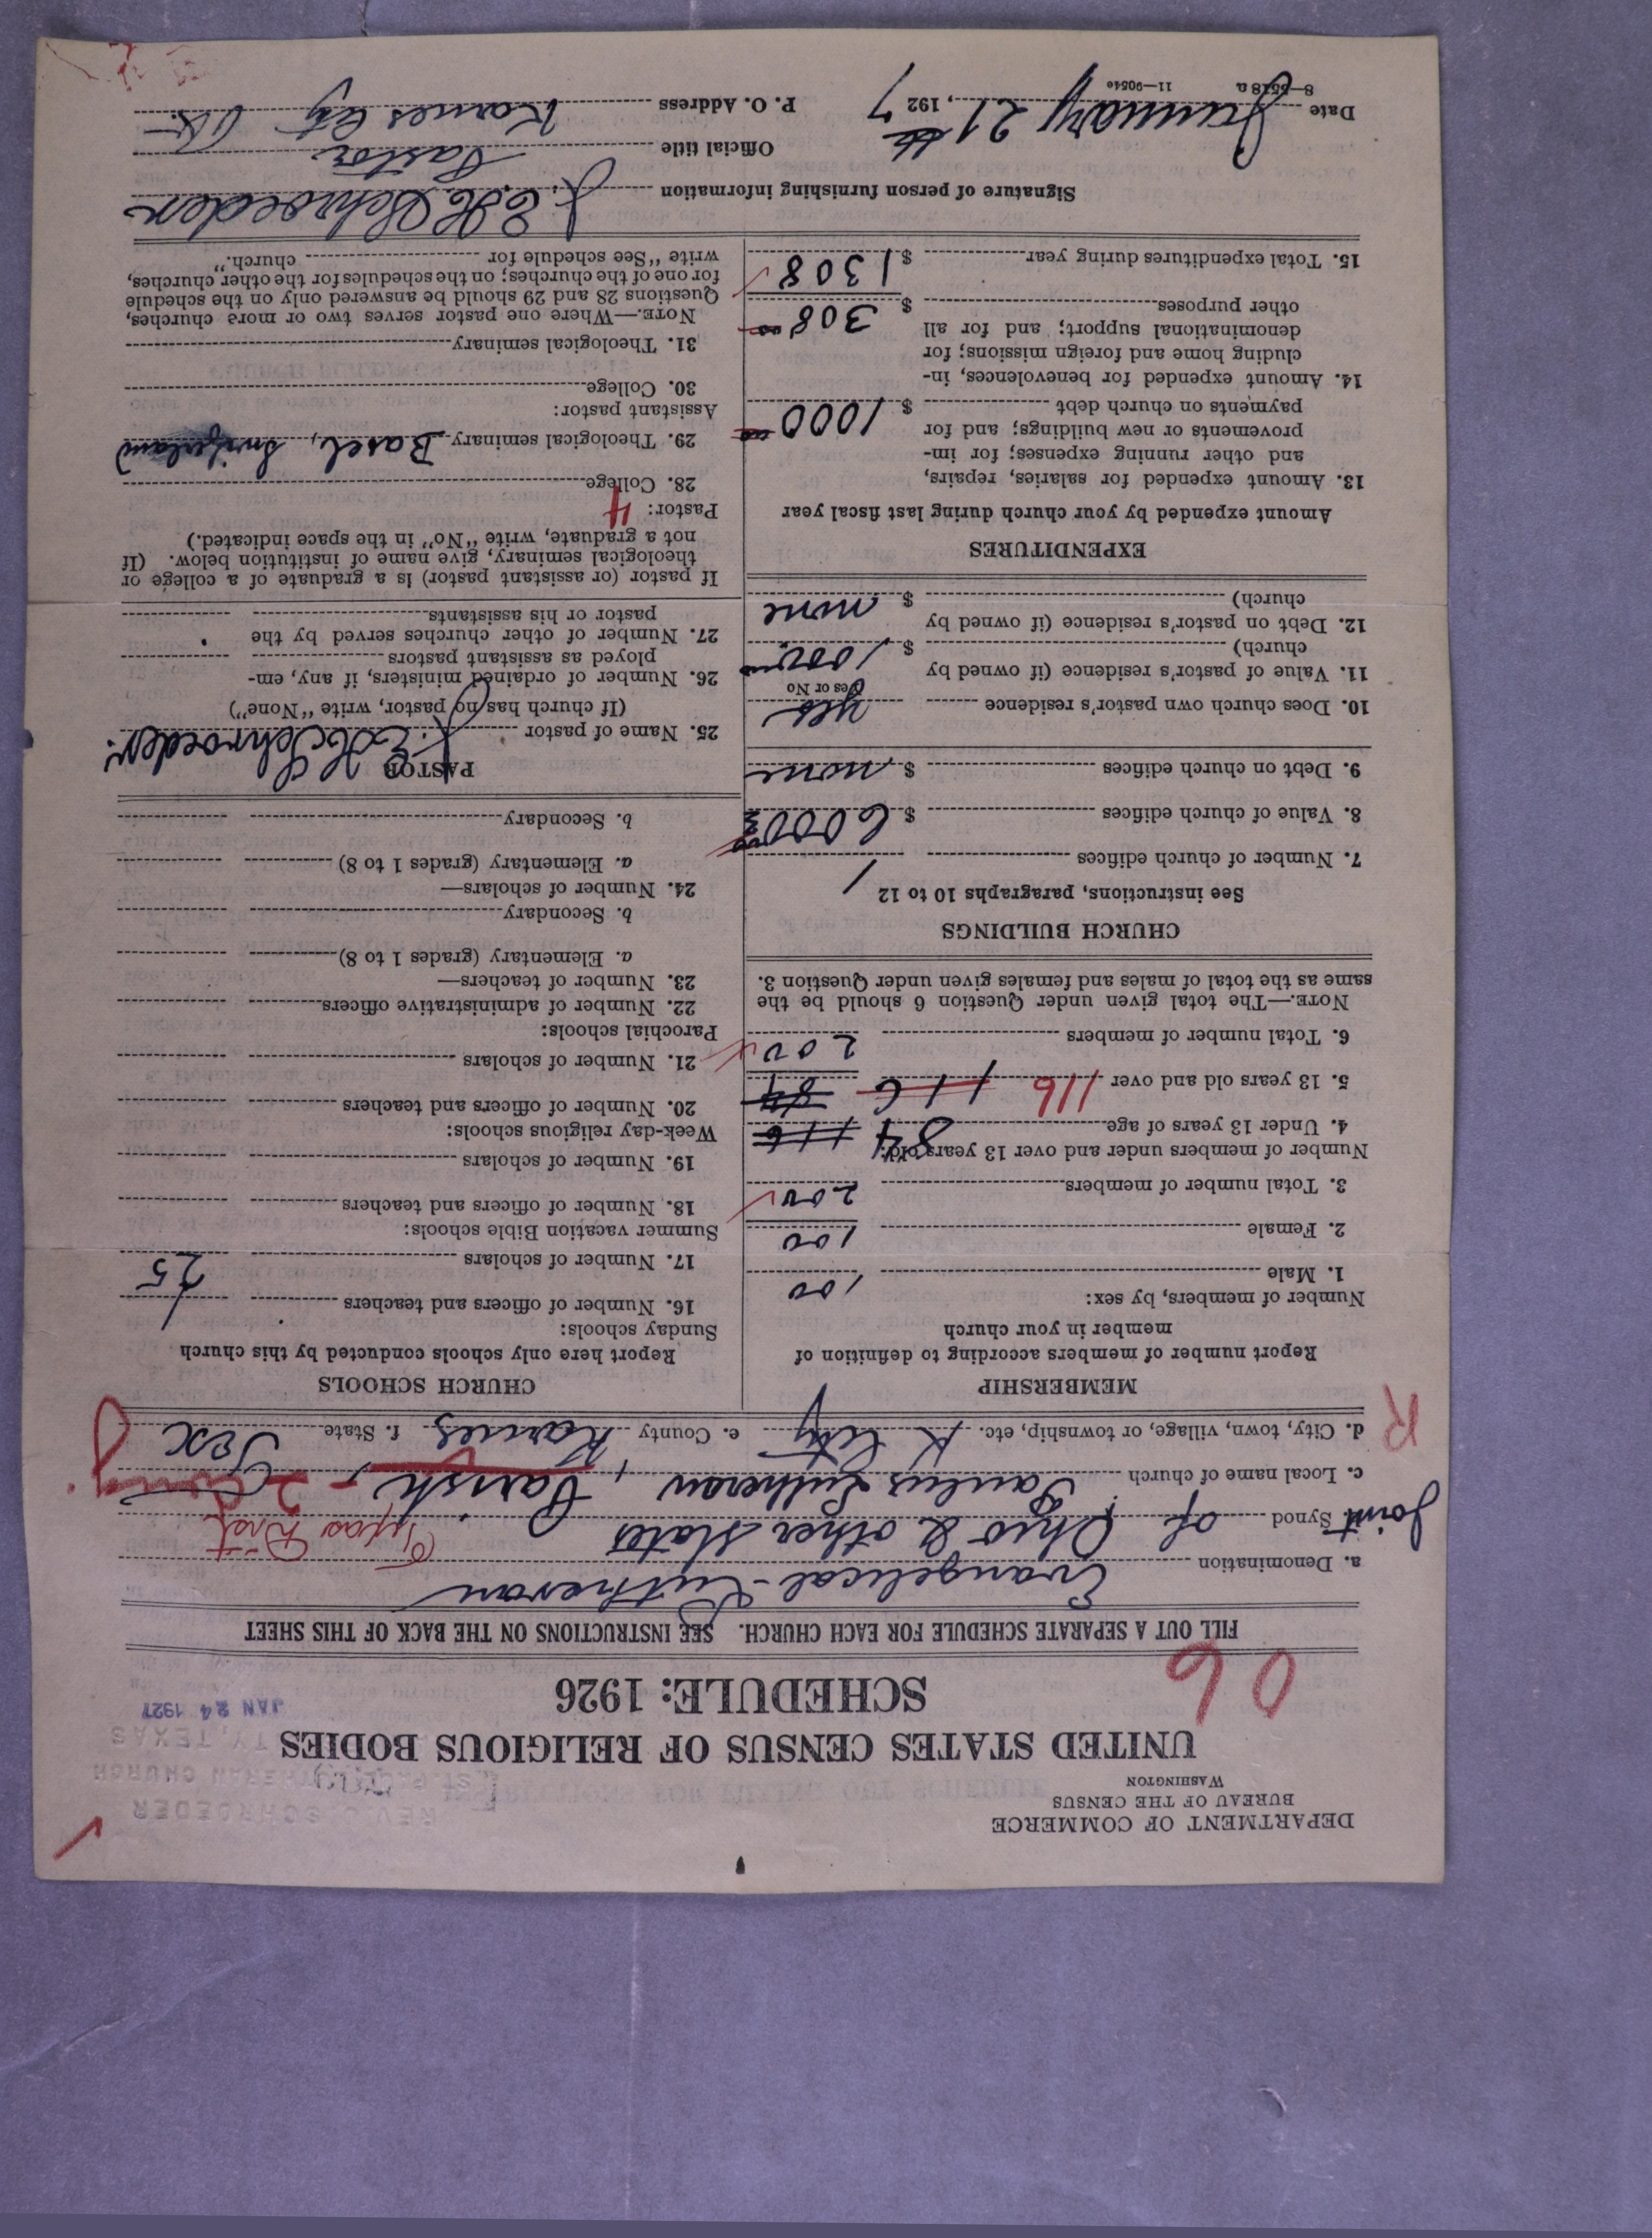 DEPARTMENT OF COMMERCE
BUREAU OF THE CENSUS
WASHINGTON
REV. C. SCHROEDER
ST. PAUL LUTHERAN CHURCH
TY, TEXAS
JAN 24 1927
UNITED STATES CENSUS OF RELIGIOUS BODIES
SCHEDULE: 1926
06
FILL OUT A SEPARATE SCHEDULE FOR EACH CHURCH. SEE INSTRUCTIONS ON THE BACK OF THIS SHEET
a. Denomination Evangelical-Lutheran
Joint Synod of Ohio & other States Texas Dist
c. Local name of church Paulus Lutheran Parish
d. City, town, village, or township, etc. K City e. County Karnes f. State Tex
R
MEMBERSHIP
Report number of members according to definition of
member in your church
Number of members, by sex:
1. Male 100
2. Female 100
3. Total number of members 200
Number of members under and over 13 years old:
4. Under 13 years of age 84 116
5. 13 years old and over 116 116 84
6. Total number of members 200
NOTE.—The total given under Question 6 should be the
same as the total of males and females given under Question 3.
CHURCH BUILDINGS
See instructions, paragraphs 10 to 12
7. Number of church edifices 1
8. Value of church edifices $ 6000
9. Debt on church edifices $ none
10. Does church own pastor's residence yes
Yes or No
11. Value of pastor's residence (if owned by
church) $ 1000
12. Debt on pastor's residence (if owned by
church) $ none
EXPENDITURES
Amount expended by your church during last fiscal year
13. Amount expended for salaries, repairs,
and other running expenses; for im-
provements or new buildings; and for
payments on church debt $ 1000
14. Amount expended for benevolences, in-
cluding home and foreign missions; for
denominational support; and for all
other purposes $ 308
15. Total expenditures during year $ 1308
CHURCH SCHOOLS
Report here only schools conducted by this church
Sunday schools:
16. Number of officers and teachers 1
17. Number of scholars 25
Summer vacation Bible schools:
18. Number of officers and teachers
19. Number of scholars
Week-day religious schools:
20. Number of officers and teachers
21. Number of scholars
Parochial schools:
22. Number of administrative officers
23. Number of teachers—
a. Elementary (grades 1 to 8)
b. Secondary
24. Number of scholars—
a. Elementary (grades 1 to 8)
b. Secondary
PASTOR
25. Name of pastor J. E. H. Schroeder.
(If church has no pastor, write "None")
26. Number of ordained ministers, if any, em-
ployed as assistant pastors
27. Number of other churches served by the
pastor or his assistants
If pastor (or assistant pastor) is a graduate of a college or
theological seminary, give name of institution below. (If
not a graduate, write "No" in the space indicated.)
Pastor: 4
28. College
29. Theological seminary Basel, Switzerland
Assistant pastor:
30. College
31. Theological seminary
NOTE.—Where one pastor serves two or more churches,
Questions 28 and 29 should be answered only on the schedule
for one of the churches; on the schedules for the other churches,
write "See schedule for church."
Signature of person furnishing information J. E. H. Schroeder
Official title Pastor
Date January 21st, 1927 P. O. Address Karnes City
8—5518a 11—9054e